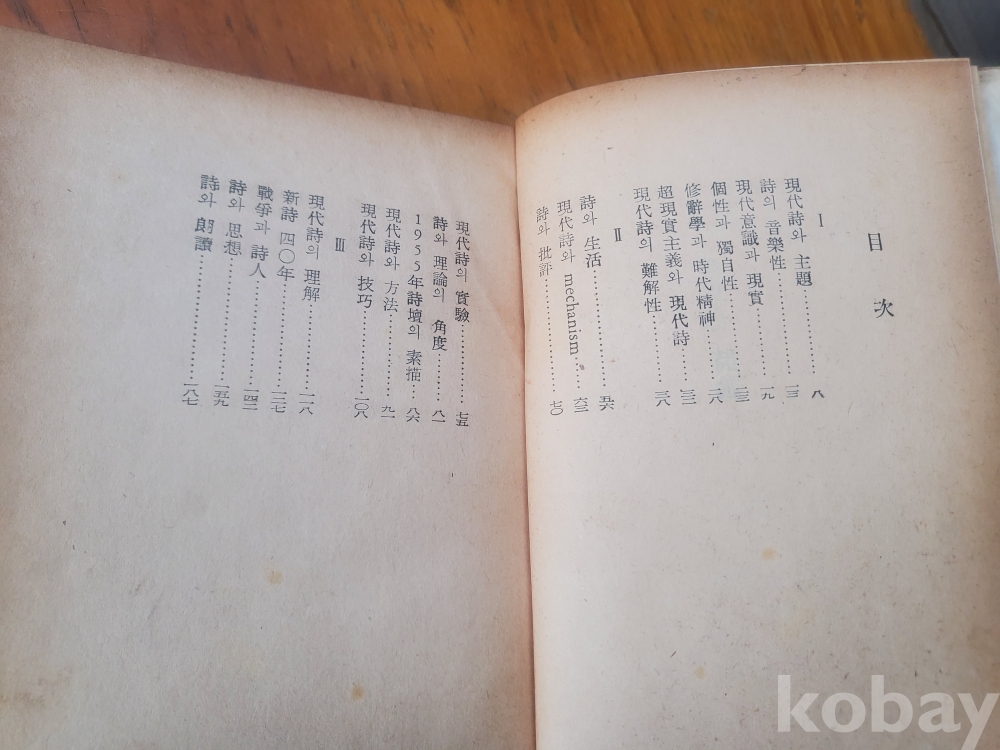 目次
I
現代詩와 主題……………八
詩의 音樂性……………一三
現代意識과 現實……………一九
個性과 獨自性……………二三
修辭學과 時代精神……………二八
超現實主義와 現代詩……………三三
現代詩의 難解性……………三八
II
詩와 生活……………五六
現代詩와 mechanism……………六三
詩와 批評……………七〇
現代詩의 實驗……………七五
詩와 理論의 角度……………八一
1955年詩壇의 素描……………八六
現代詩와 方法……………九一
現代詩와 技巧……………一〇八
III
現代詩의 理解……………一一八
新詩 四〇年……………一三七
戰爭과 詩人……………一四二
詩와 思想……………一五九
詩와 朗讀……………一八七
kobay